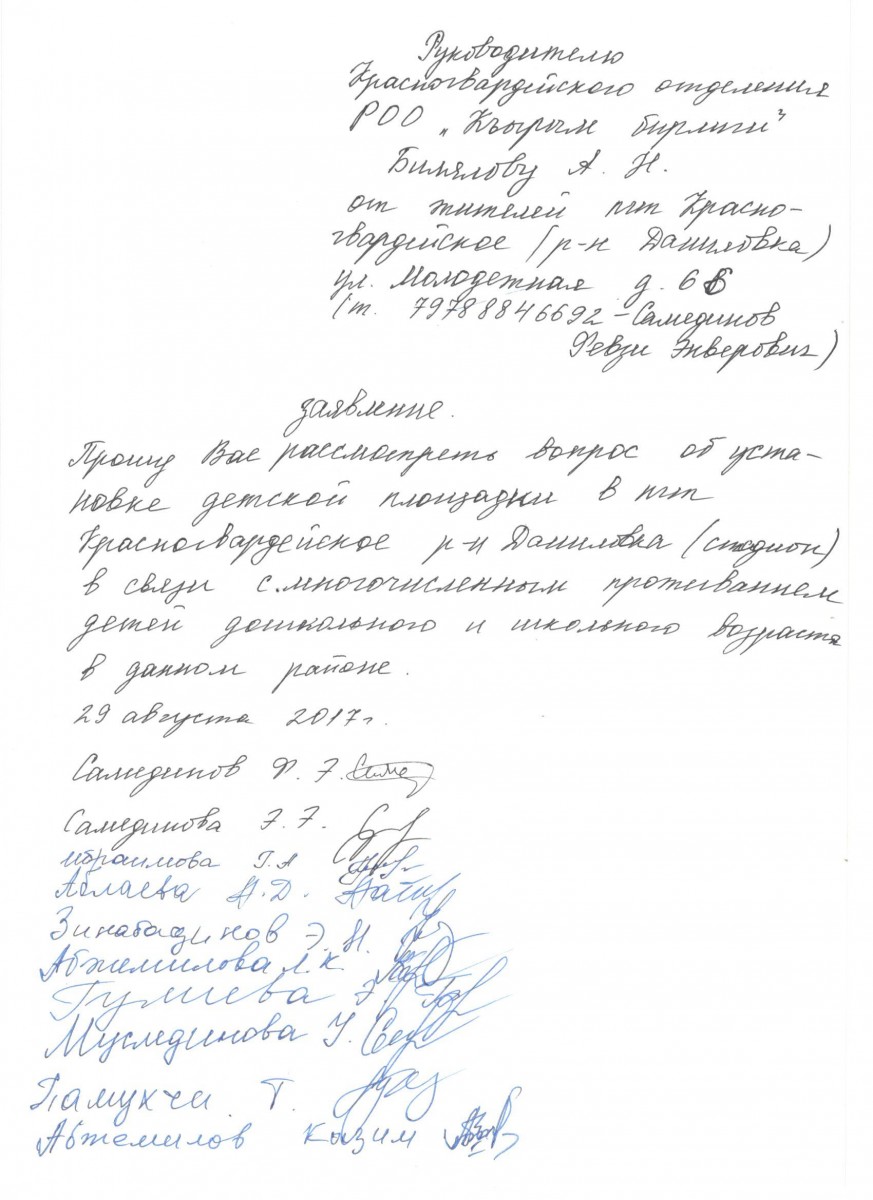 Руководителю
Красногвардейского отделения
РОО „Къырым бирлиги"
Билялову А. Н.
от жителей пгт Красно-
гвардейское (р-н Даниловка)
ул. Молодежная д. 6
(т. 79788846692 - Самединов
Февзи Энверович)
заявление.
Прошу Вас рассмотреть вопрос об уста-
новке детской площадки в пгт
Красногвардейское р-н Даниловка (стадион)
в связи с многочисленным проживанием
детей дошкольного и школьного возраста
в данном районе.
29 августа 2017г.
Самединов Ф. Э.
Самединова Э. Э.
Ибраимова Г. А
Аблаева Н. Д.
Зинабадинов Э. Н.
Абжемилова Л. К.
Гумиева Э
Муслединова У.
Памукчи Т.
Абжемилов Казим